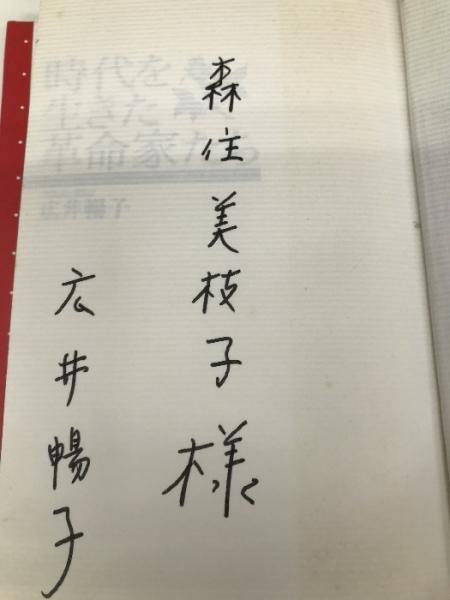 森住美枝子様
広井暢子
時代を
生きた
革命家たち
広井暢子